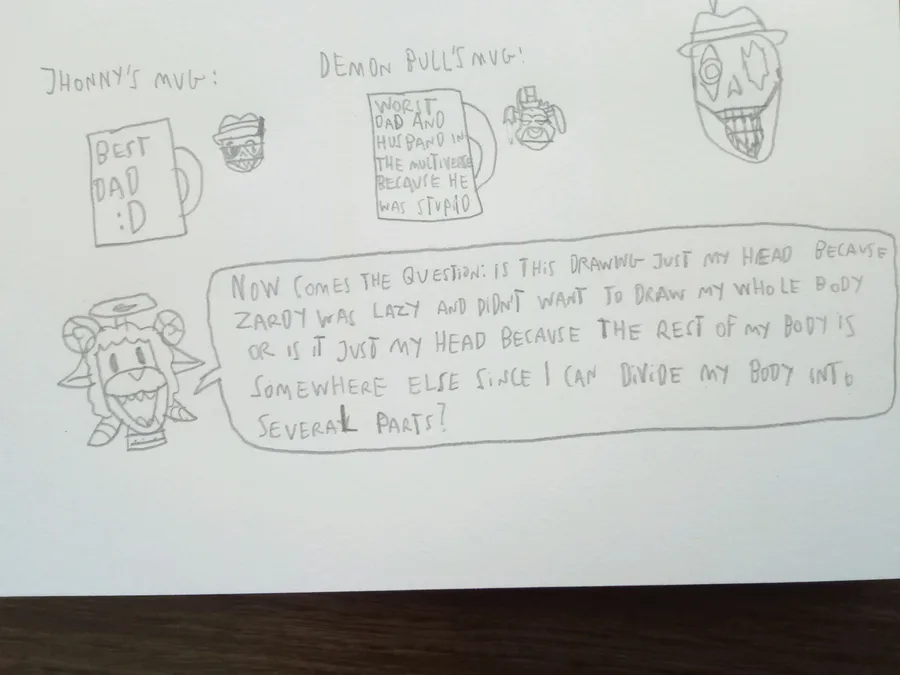 JHONNY'S MUG:
BEST
DAD
:D
DEMON BULL'S MUG:
WORST
DAD AND
HUSBAND IN
THE MULTIVERSE
BECAUSE HE
WAS STUPID
NOW COMES THE QUESTION: IS THIS DRAWING JUST MY HEAD BECAUSE
ZARDY WAS LAZY AND DIDN'T WANT TO DRAW MY WHOLE BODY
OR IS IT JUST MY HEAD BECAUSE THE REST OF MY BODY IS
SOMEWHERE ELSE SINCE I CAN DIVIDE MY BODY INTO
SEVERAL PARTS?